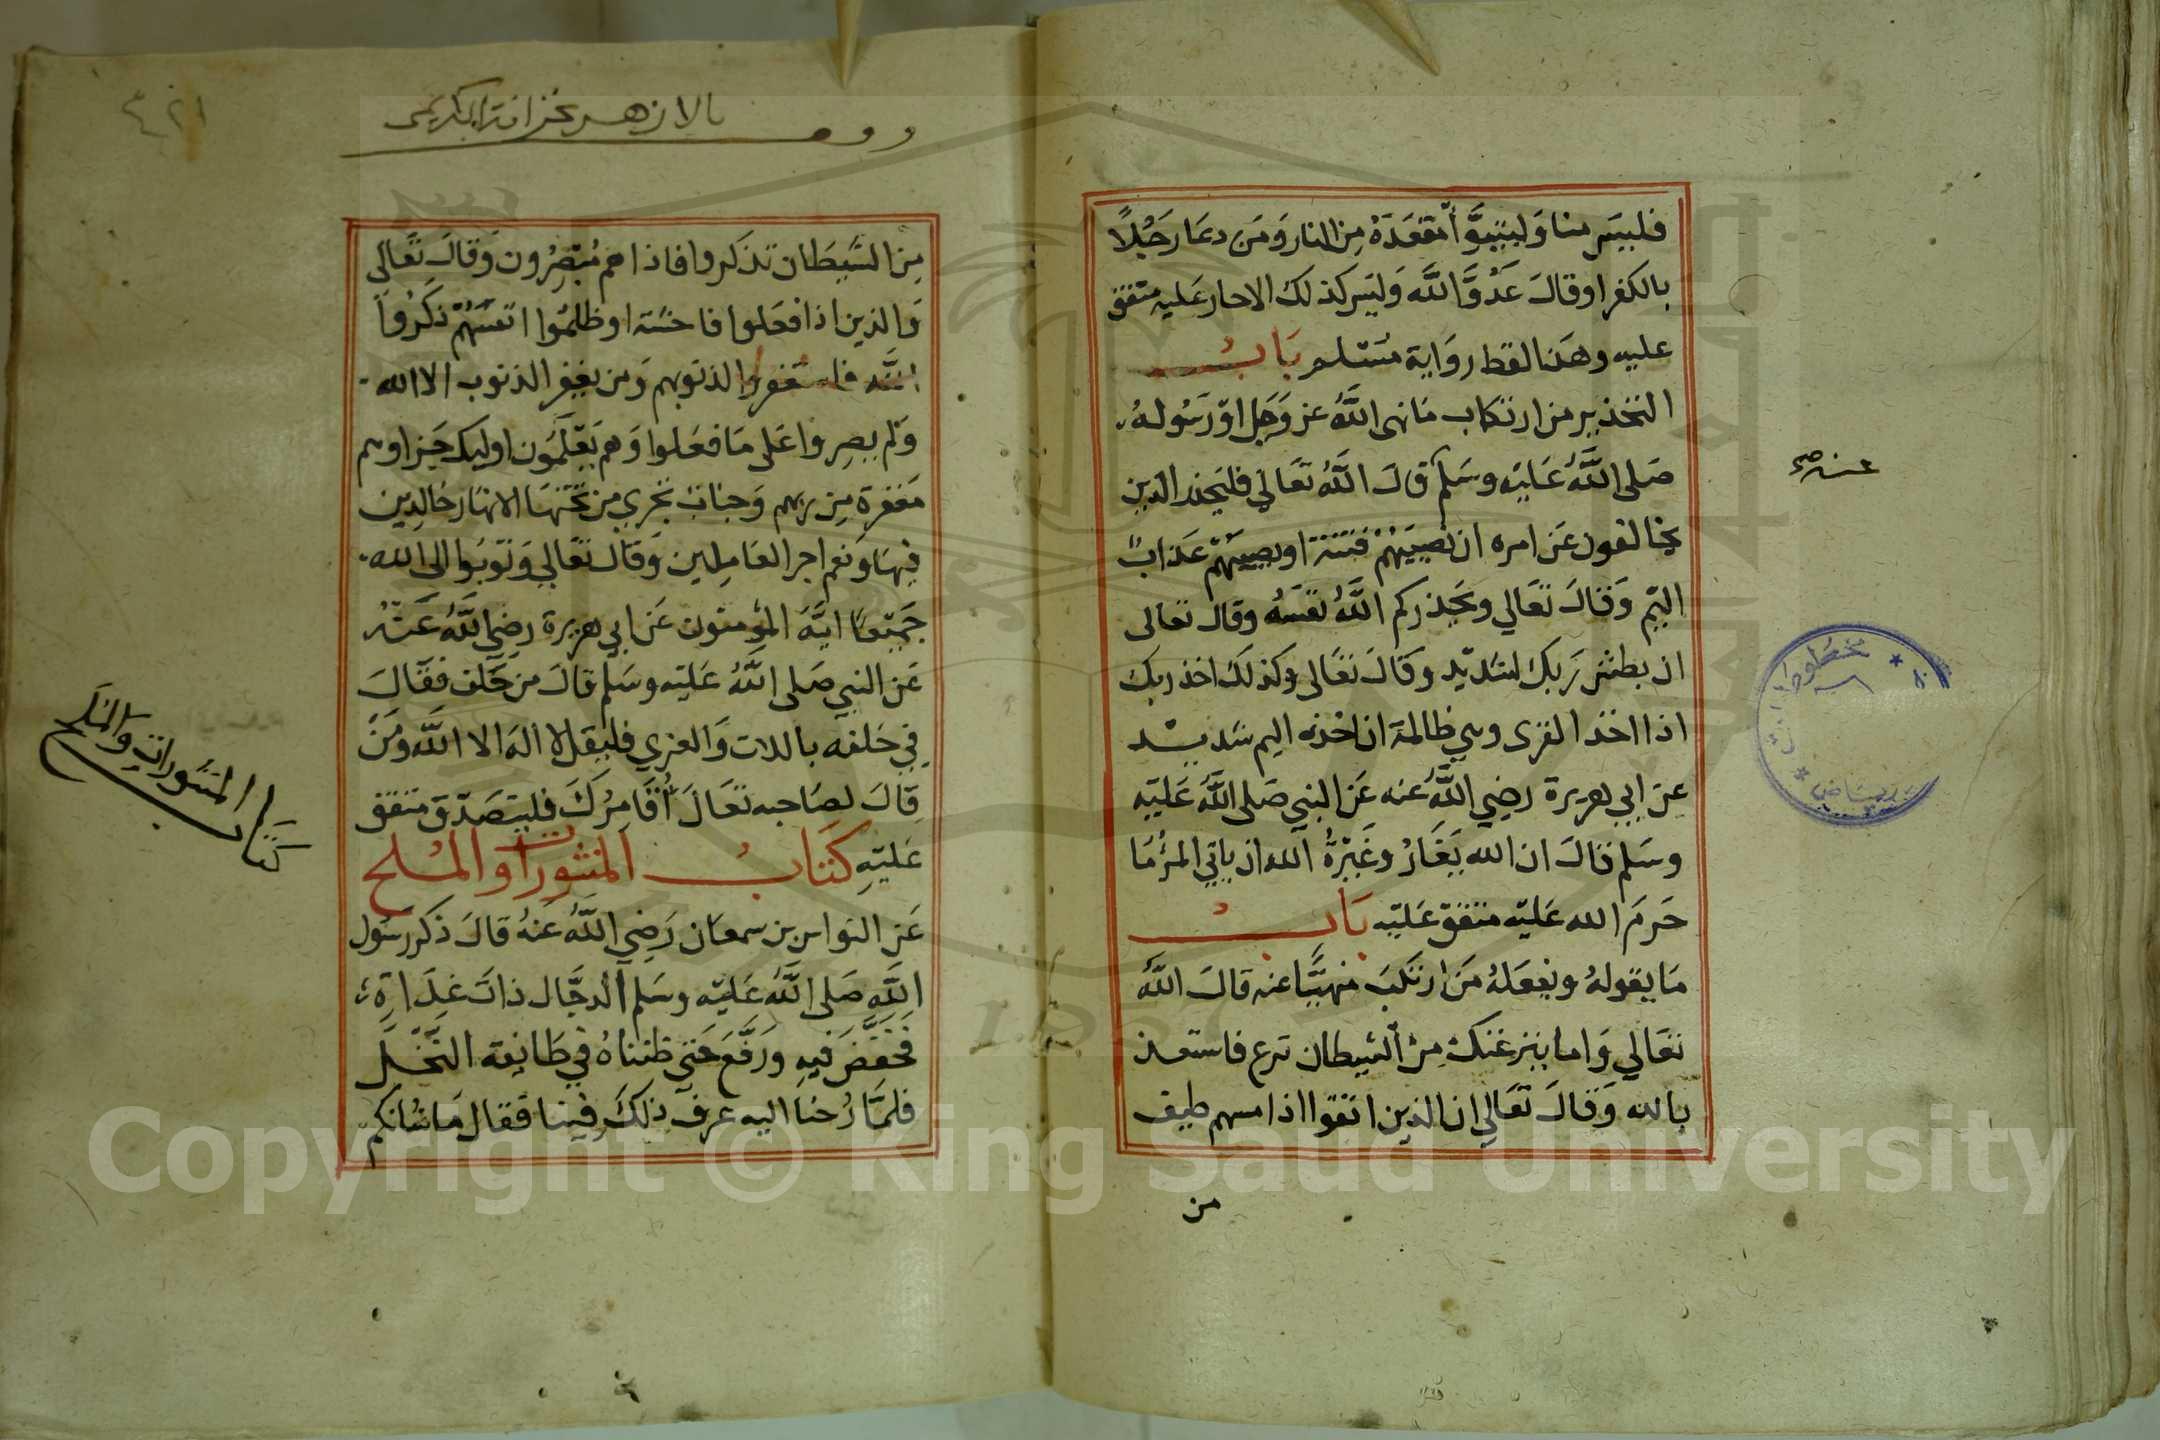 فليس منا وليتبوأ مقعده من النار ومن دعا رجلاً
بالكفر او قال عدو الله وليس كذلك الا حار عليه متفق
عليه وهذا لفظ رواية مسلم باب
التحذير من ارتكاب ما نهى الله عز وجل او رسوله
عنه صح
صلى الله عليه وسلم قال الله تعالي فليحذر الذين
يخالفون عن امره ان تصيبهم فتنة او يصيبهم عذاب
اليم وقال تعالي ويحذركم الله نفسه وقال تعالى
ان بطش ربك لشديد وقال تعالى وكذلك اخذ ربك
اذا اخذ القرى وهي ظالمة ان اخذه اليم شديد
عن ابي هريرة رضي الله عنه عن النبي صلى الله عليه
وسلم قال ان الله يغار وغيرة الله ان ياتي المرء ما
حرم الله عليه متفق عليه باب
ما يقوله ويفعله من ارتكب منهيا عنه قال الله
تعالي واما ينزغنك من الشيطان نزع فاستعذ
بالله وقال تعالي ان الذين اتقوا اذا مسهم طيف
من
مخطوطات
الرياض
بالازهر بخزانة
٤٢١
من الشيطان تذكروا فاذا هم مبصرون وقال تعالى
والذين اذا فعلوا فاحشة او ظلموا انفسهم ذكروا
الله فاستغفروا لذنوبهم ومن يغفر الذنوب الا الله
ولم يصروا على ما فعلوا وهم يعلمون اوليك جزاوهم
مغفرة من ربهم وجنات تجري من تحتها الانهار خالدين
فيها ونعم اجر العاملين وقال تعالي وتوبوا الى الله
جميعا ايه المؤمنون عن ابي هريرة رضي الله عنه
عن النبي صلى الله عليه وسلم قال من حلف فقال
في حلفه باللات والعزي فليقل لا اله الا الله ومن
قال لصاحبه تعال أقامرك فليتصدق متفق
عليه كتاب المنثورات والملح
كتاب المنثورات والملح
عن النواس بن سمعان رضي الله عنه قال ذكر رسول
الله صلى الله عليه وسلم الدجال ذات غداة
فخفض فيه ورفع حتى ظنناه في طايفة النخل
فلما رحنا اليه عرف ذلك فينا فقال ما شانكم
Copyright © King Saud University
1957